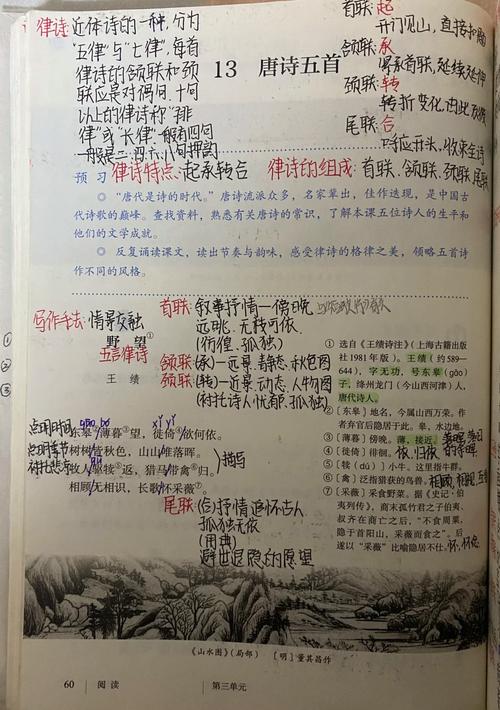 律诗:近体诗的一种,分为
"五律"与"七律",每首
律诗的颔联和颈
联应是对偶句,十句
以上的律诗称"排
律"或"长律"一般有四句
首联:起
开门见山,直接扣题
颔联:承
紧承首联,延续延伸
颈联:转
转折变化,由此
尾联:合
呼应开头,收束全诗
13 唐诗五首
预习
律诗特点:起承转合 律诗的组成:首联、颔联、颈联、尾联
◎ “唐代是诗的时代。”唐诗流派众多,名家辈出,佳作迭现,是中国古
代诗歌的巅峰。查找资料,熟悉有关唐诗的常识,了解本课五位诗人的生平和
他们的文学成就。
◎ 反复诵读课文,读出节奏与韵味,感受律诗的格律之美,领略五首诗
作不同的风格。
写作手法:情景交融
首联:叙事抒情—傍晚
远眺,无我可依
(彷徨,孤独)
野 望①
五言律诗
颔联(承)—远景,静态,秋色图
王 绩
颈联(转)—近景,动态,人物图
(衬托诗人忧郁,孤独)
①
②
③
点明时间
gāo bó
xǐ yǐ
东皋②薄暮③望,徙倚④欲何依。
点明季节
树树皆秋色,山山唯落晖。
描写
牧人驱犊⑤返,猎马带禽⑥归。
相顾无相识,长歌怀采薇⑦。
尾联:(合)抒情 追怀古人
孤独无依
(用典)
避世退隐的愿望
① 选自《王绩诗注》(上海古籍出版
社1981年版)。王绩(约589—
644),字无功,号东皋(gāo)
子,绛州龙门(今山西河津)人,
唐代诗人。
② 〔东皋〕地名,今属山西万荣。作
者弃官后隐居于此。皋,水边地。
③ 〔薄暮〕傍晚。薄,接近。
④ 〔徙倚〕徘徊。
依:归依
⑤ 〔犊(dú)〕小牛。这里指牛群。
⑥ 〔禽〕泛指猎获的鸟兽。
⑦ 〔采薇〕采食野菜。据《史记·伯
夷列传》,商末孤竹君之子伯夷、
叔齐在商亡之后,“不食周粟,
隐于首阳山,采薇而食之”。后
遂以“采薇”比喻隐居不仕。
《山水图》(局部) [明]董其昌作
60 阅读 第三单元